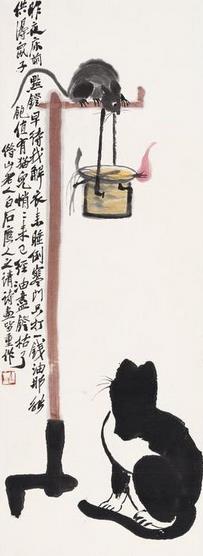 昨夜床前點燈早待我解衣來睡倒寒門只打一錢油那能
供得鼠子飽值有貓兒悄悄來已經油盡燈枯了
借山老人白石應人之請詩畫皆重作